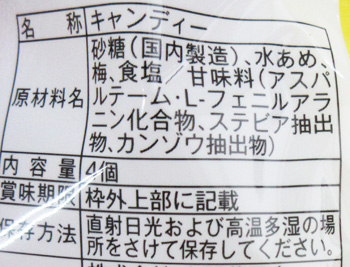 名称 キャンディー
原材料名 砂糖(国内製造)、水あめ、
梅、食塩 甘味料(アスパ
ルテーム・L-フェニルアラ
ニン化合物、ステビア抽出
物、カンゾウ抽出物)
内容量 4個
賞味期限 枠外上部に記載
保存方法 直射日光および高温多湿の場
所をさけて保存してください。